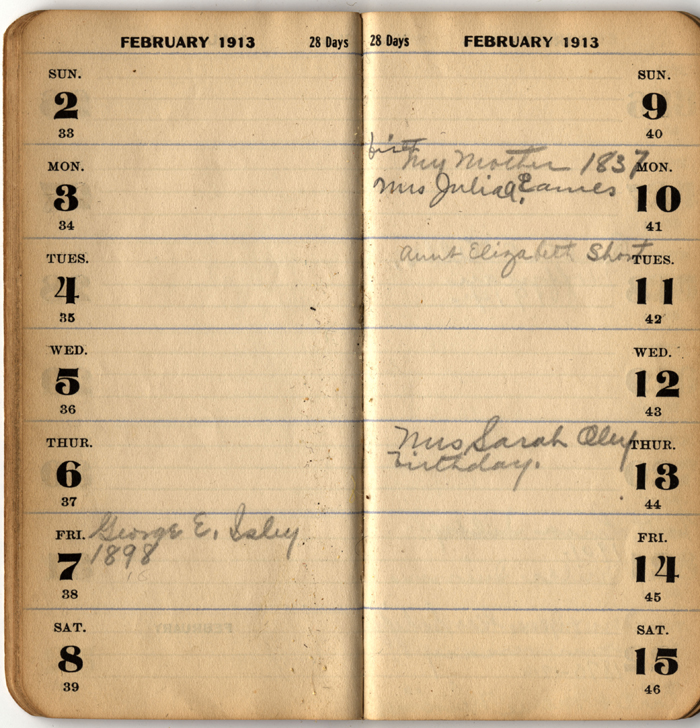 FEBRUARY 1913 28 Days
SUN.
2
33
MON.
3
34
TUES.
4
35
WED.
5
36
THUR.
6
37
FRI. George E. Isley
7 1898
38
SAT.
8
39
28 Days FEBRUARY 1913
SUN.
9
40
My Mother 1837 MON.
Mrs Julia A. Eames 10
41
Aunt Elizabeth Short TUES.
11
42
WED.
12
43
Mrs Sarah THUR.
birthday. 13
44
FRI.
14
45
SAT.
15
46